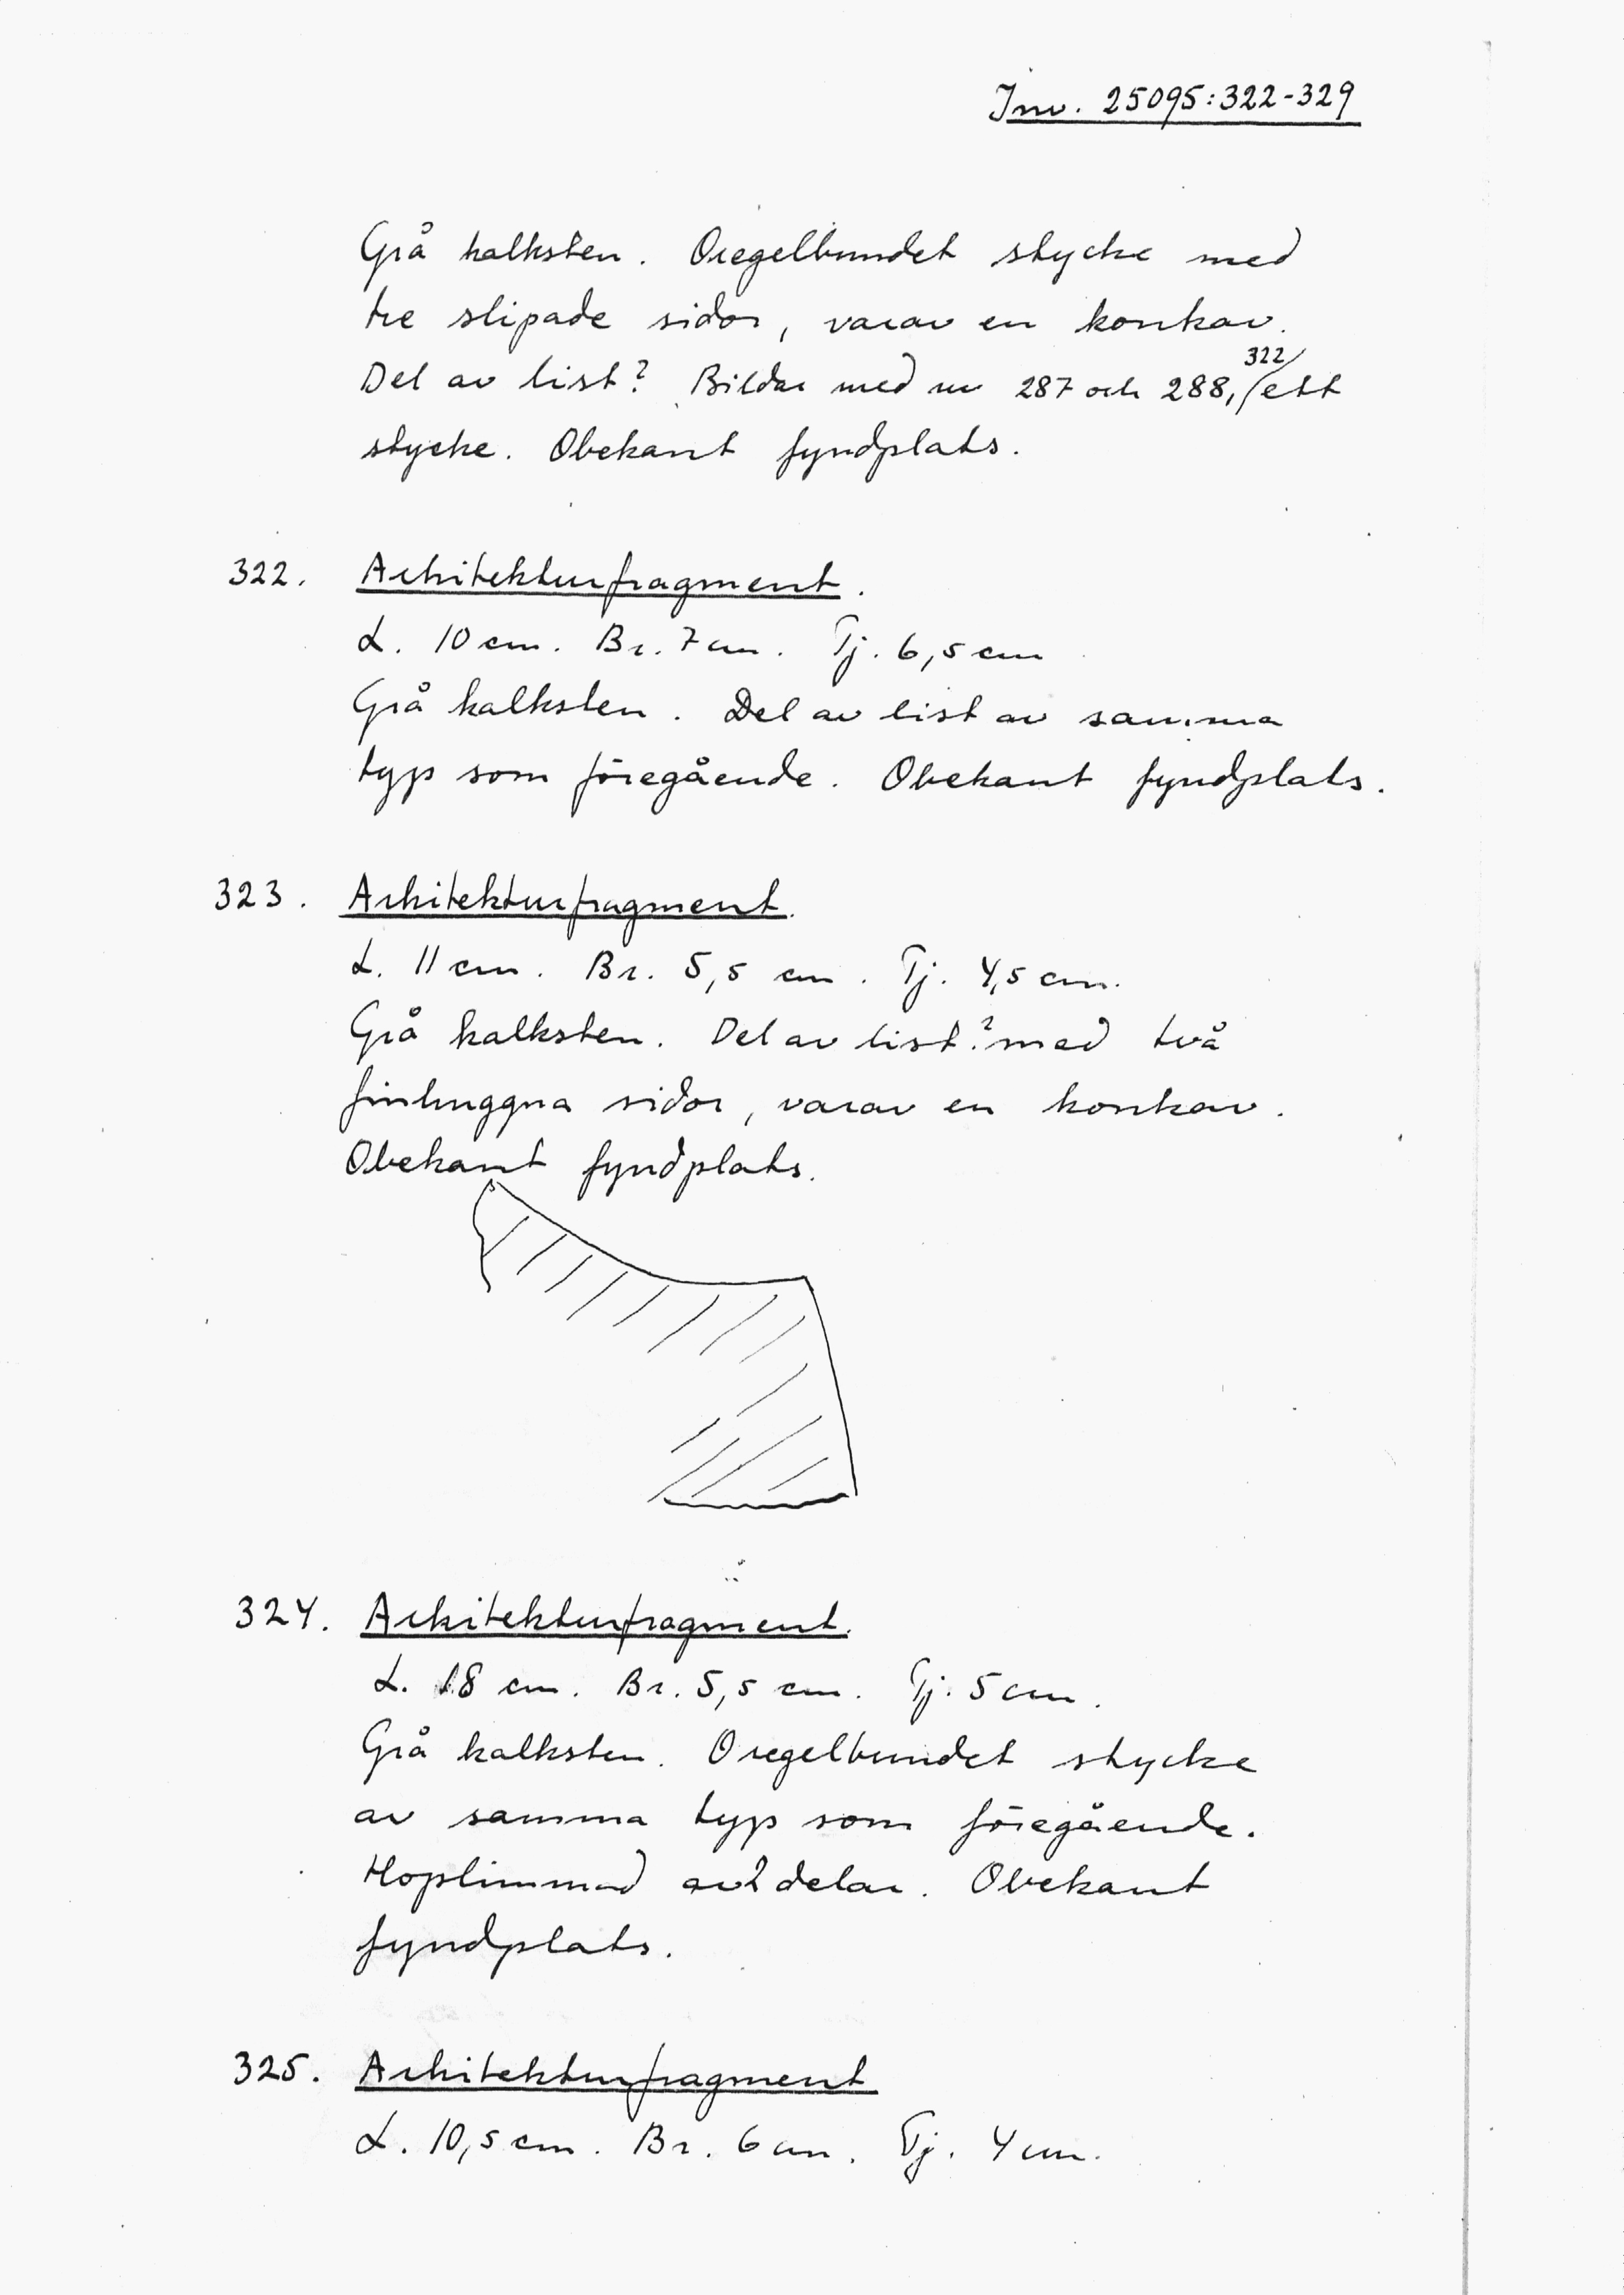 Inv. 25095:322-329
Grå kalksten. Oregelbundet stycke med
tre slipade sidor, varav en konkav.
Del av list? Bildar med nr 287 och 288, 322 ett
stycke. Obekant fyndplats.
322. Arkitekturfragment.
L. 10 cm. Br. 7 cm. Tj. 6,5 cm
Grå kalksten. Del av list av samma
typ som föregående. Obekant fyndplats.
323. Arkitekturfragment.
L. 11 cm. Br. 5,5 cm. Tj. 4,5 cm.
Grå kalksten. Del av list? med två
finhuggna sidor, varav en konkav.
Obekant fyndplats.
324. Arkitekturfragment.
L. 18 cm. Br. 5,5 cm. Tj. 5 cm.
Grå kalksten. Oregelbundet stycke
av samma typ som föregående.
Hoplimmad av 2 delar. Obekant
fyndplats.
325. Arkitekturfragment
L. 10,5 cm. Br. 6 cm. Tj. 4 cm.